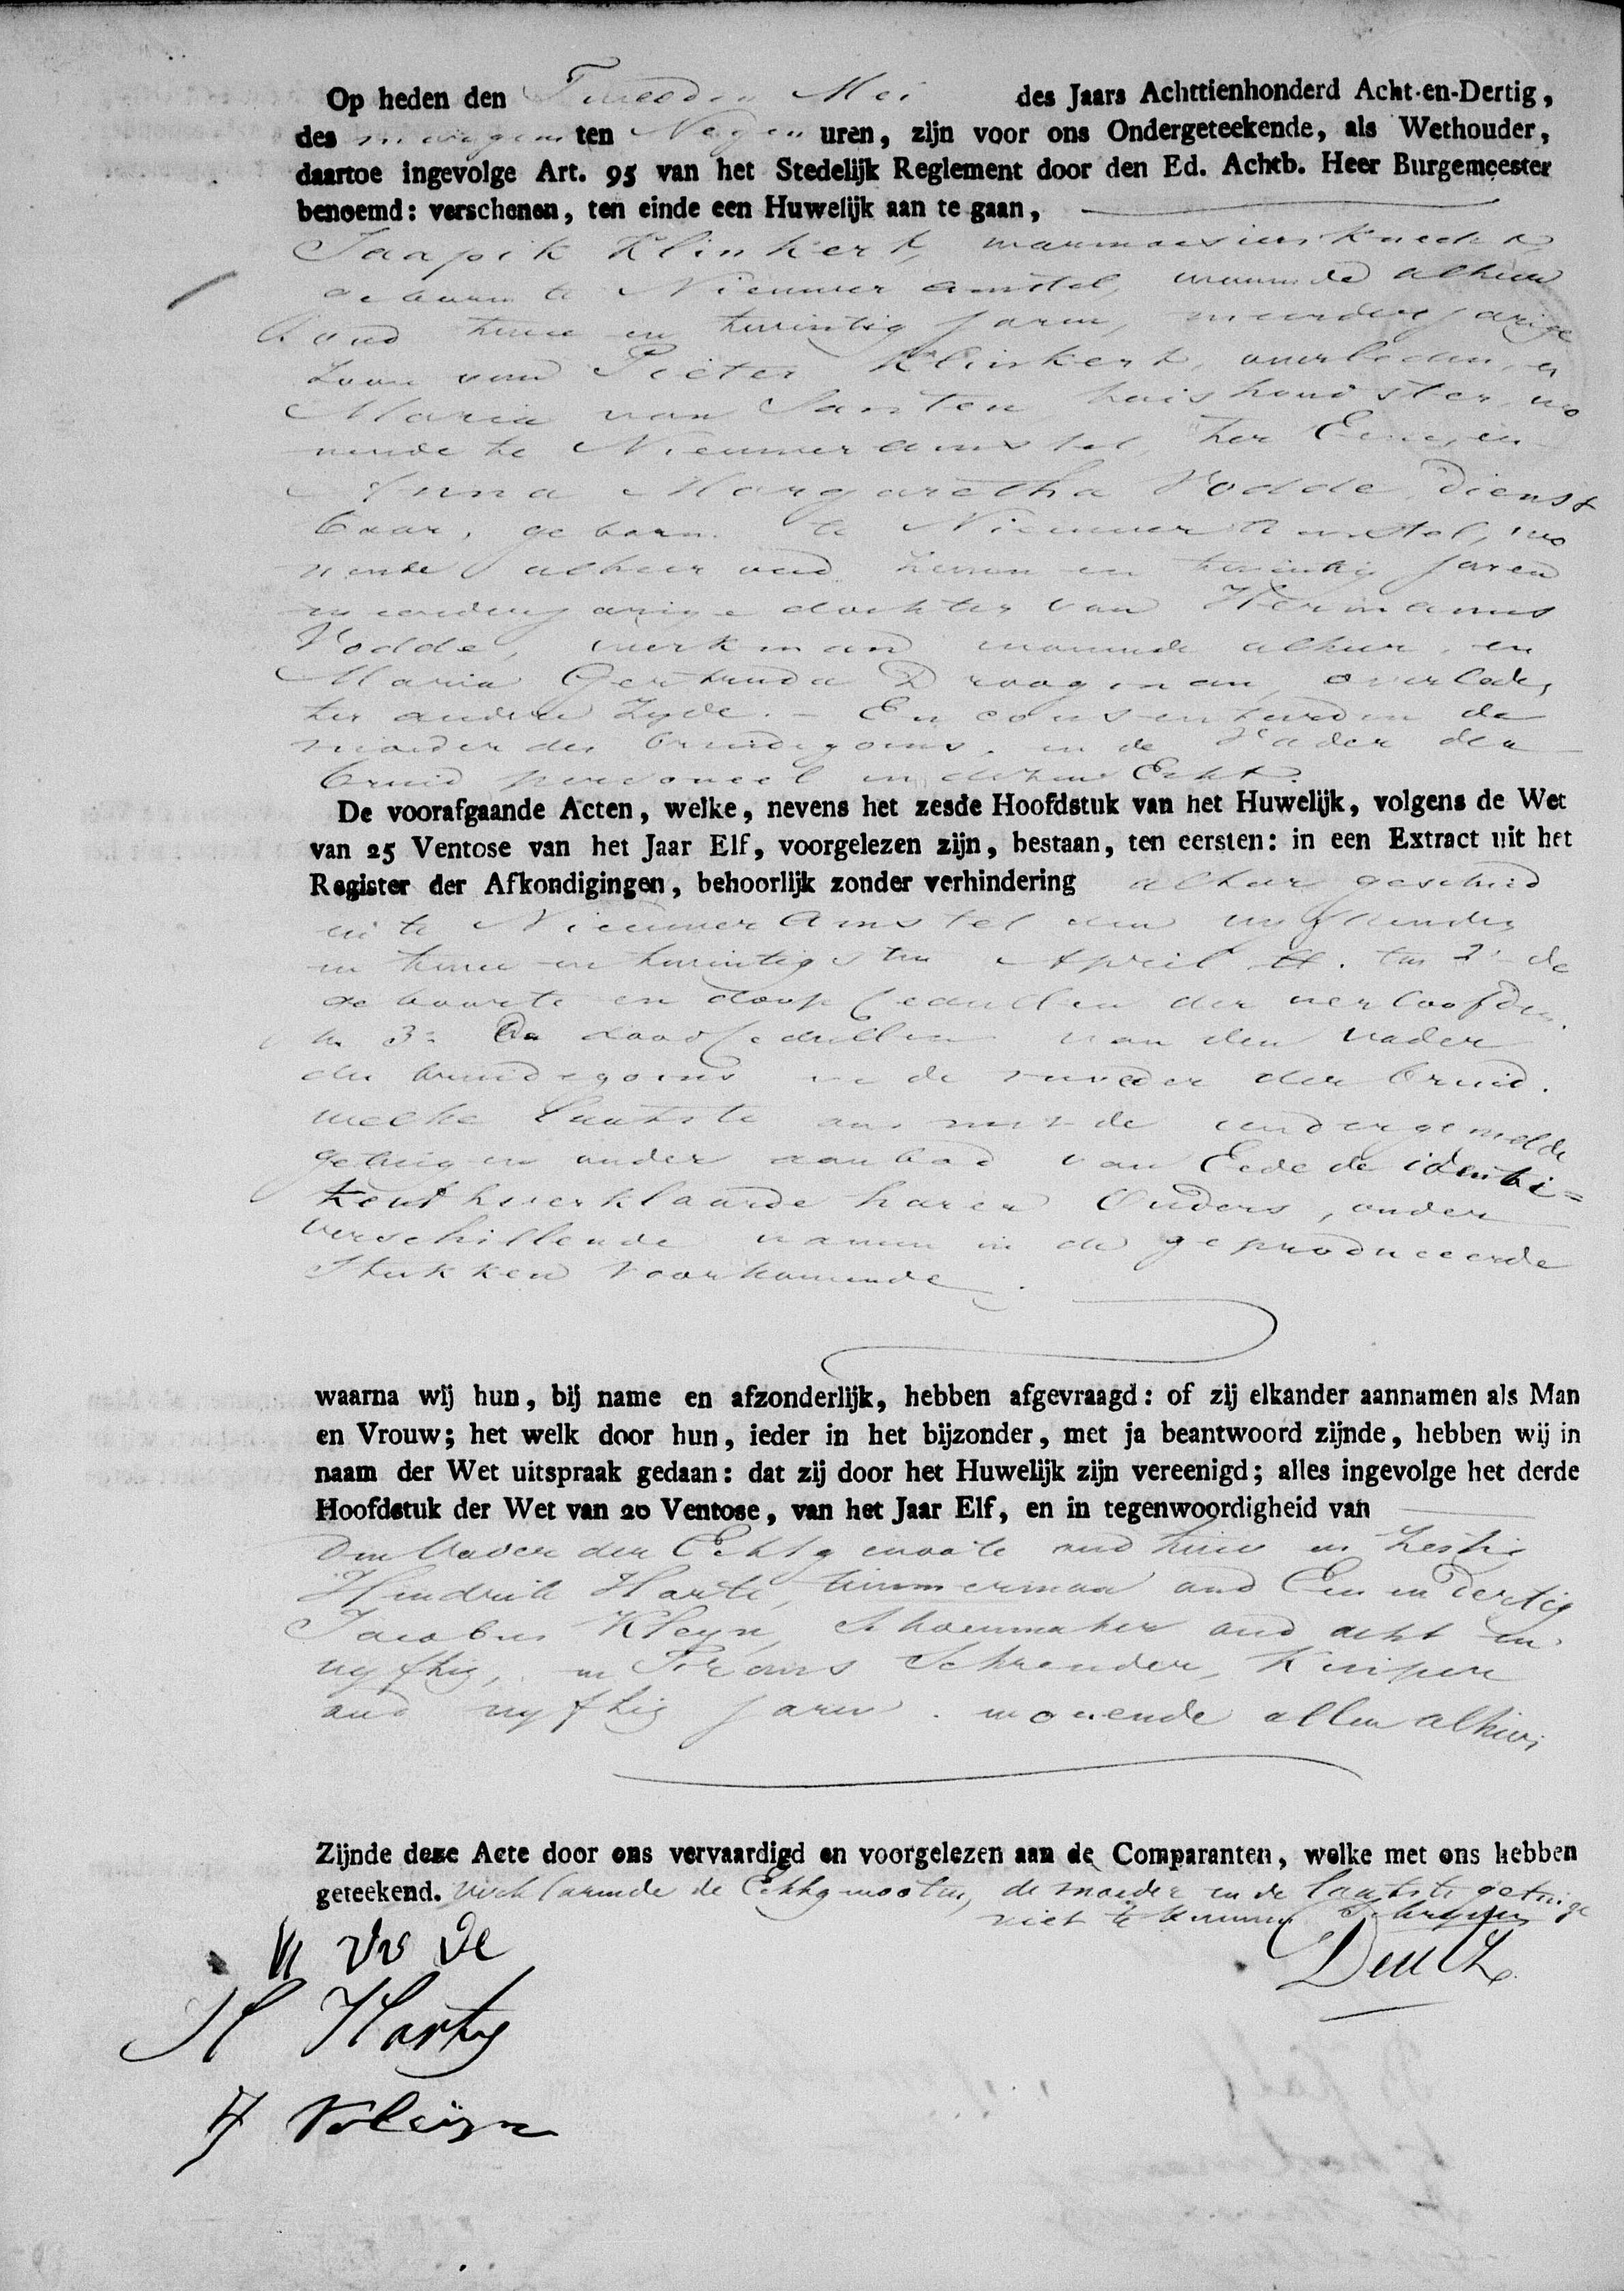 Op heden den Tweeden Mei des Jaars Achttienhonderd Acht-en-Dertig,
des morgens ten Negen uren, zijn voor ons Ondergeteekende, als Wethouder,
daartoe ingevolge Art. 95 van het Stedelijk Reglement door den Ed. Achtb. Heer Burgemeester
benoemd: verschenen, ten einde een Huwelijk aan te gaan,
Jaapik Klinkert,
geboren te Nieuwer Amstel, woonende alhier
oud twee en twintig jaren, meerderjarige
Zoon van Pieter Klinkert, overleden, en
Maria van Santen huishoudster, wo
nende te Nieuwer Amstel, ter Eene, en
Anna Margaretha Vodde, Dienst
baar, geboren te Nieuwer Amstel, wo
nende alhier oud en twintig jaren
meerderjarige dochter van Hermanus
Vodde, werkman woonende alhier, en
Maria Gertruida Droogman, overleden
ter andere Zyde. — En consenteerden de
moeder des bruidegoms, en de Vader der
bruid personeel in dezen Echt.
De voorafgaande Acten, welke, nevens het zesde Hoofdstuk van het Huwelijk, volgens de Wet
van 25 Ventose van het Jaar Elf, voorgelezen zijn, bestaan, ten eersten: in een Extract uit het
Register der Afkondigingen, behoorlijk zonder verhindering alhier geschied
en te Nieuwer Amstel den vyftienden
en twee en twintigsten April ll. ten 2e de
geboorte en doop Cedullen der verloofden
ten 3e De dood Cedullen van den vader
des bruidegoms en de moeder der bruid.
welke laatste met de ondergemelde
getuigen onder aanbod van Eede de identi=
teit verklaarde harer Ouders, onder
verschillende namen in de geproduceerde
Stukken voorkomende.
waarna wij hun, bij name en afzonderlijk, hebben afgevraagd: of zij elkander aannamen als Man
en Vrouw; het welk door hun, ieder in het bijzonder, met ja beantwoord zijnde, hebben wij in
naam der Wet uitspraak gedaan: dat zij door het Huwelijk zijn vereenigd; alles ingevolge het derde
Hoofdstuk der Wet van 20 Ventose, van het Jaar Elf, en in tegenwoordigheid van
Den Vader der Echtgenoote oud twee en Zestig
Hindrik Harte, timmerman oud Een en Dertig
Jacobus Kleyn, Schoenmaker oud acht en
vyftig, en Frans Schreuder, Kuiper
oud vyftig jaren. wonende allen alhier
Zijnde deze Acte door ons vervaardigd en voorgelezen aan de Comparanten, welke met ons hebben
geteekend. verklarende de Echtgenooten, de moeder en de laatste getuige
niet te kunnen Schryven
Deutz
H Hartig
J Kleijn